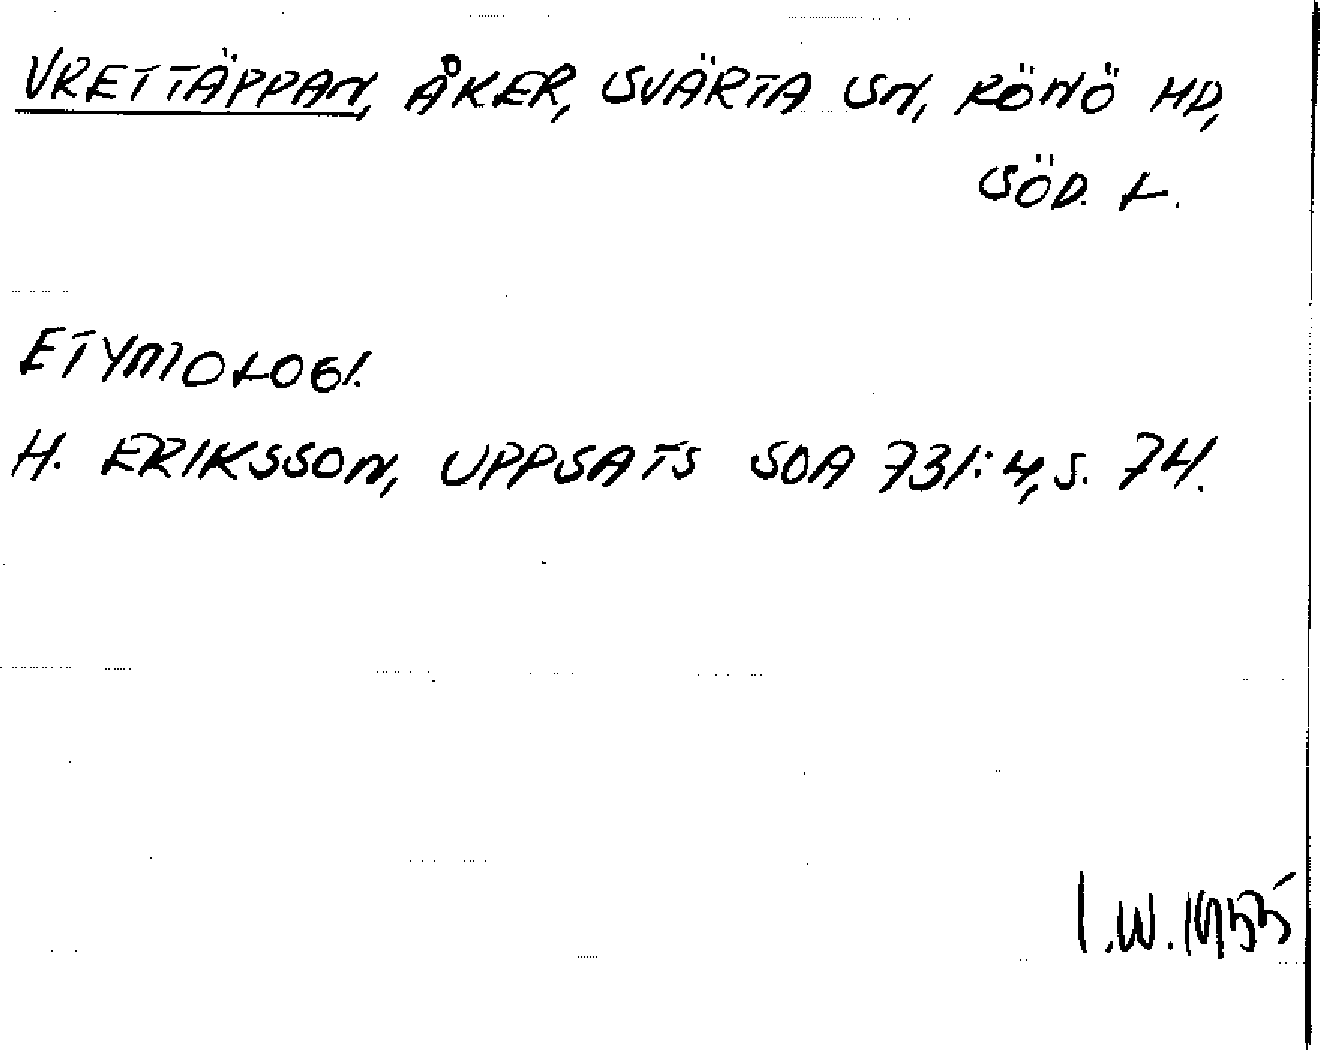 VRETTÄPPAN, ÅKER, SVÄRTA SN, RÖNÖ HD,
SÖD. L.
ETYMOLOGI.
H. ERIKSSON, UPPSATS SOA 731:4, S. 74.
I.W. 1955